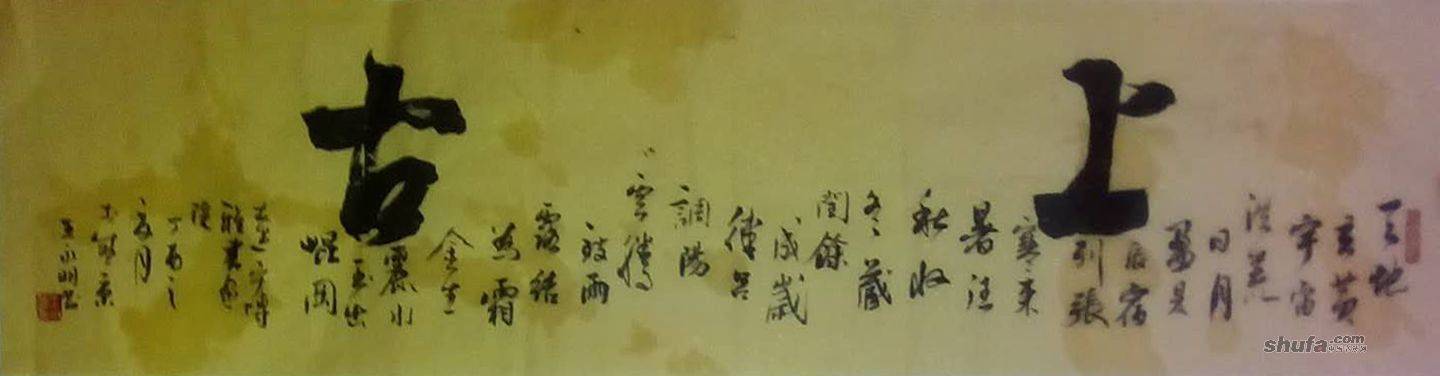 上古
天地
玄黄
宇宙
洪荒
日月
盈昃
辰宿
列張
寒来
暑往
秋收
冬藏
閏餘
成歲
律吕
調陽
雲騰
致雨
露結
為霜
金生
麗水
玉出
崐岡
丁酉之
夏月
shufa.com